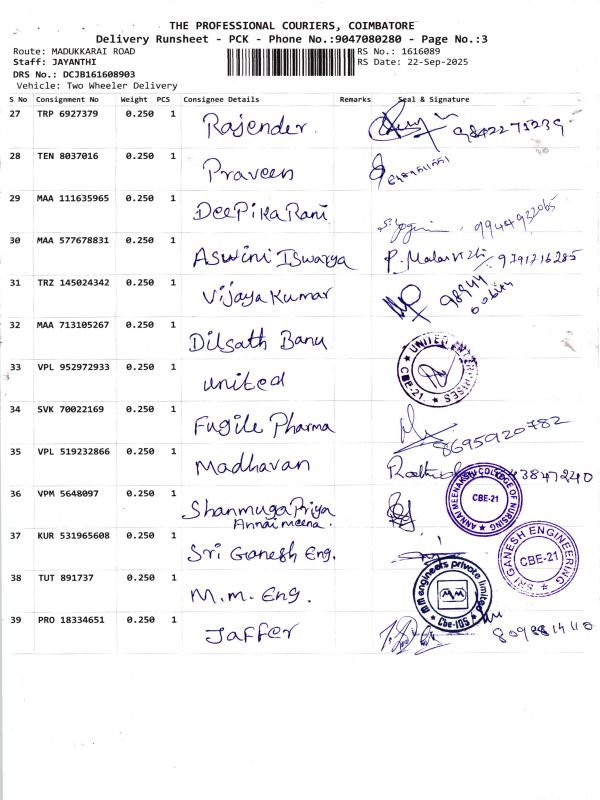 THE PROFESSIONAL COURIERS, COIMBATORE
Delivery Runsheet - PCK - Phone No.:9047080280 - Page No.:3
Route: MADUKKARAI ROAD RS No.: 1616089
Staff: JAYANTHI RS Date: 22-Sep-2025
DRS No.: DCJB161608903
Vehicle: Two Wheeler Delivery
S No Consignment No Weight PCS Consignee Details Remarks Seal & Signature
27 TRP 6927379 0.250 1 Rajender. 9842275239
28 TEN 8037016 0.250 1 Praveen
29 MAA 111635965 0.250 1 Deepika Rani
30 MAA 577678831 0.250 1 Aswini Iswarya P. Malarvizhi 9791716285
31 TRZ 145024342 0.250 1 Vijaya Kumar
32 MAA 713105267 0.250 1 Dilsath Banu
33 VPL 952972933 0.250 1 united UNITED ENTERPRISES CBE-21.
34 SVK 70022169 0.250 1 Fugile Pharma 8695920782
35 VPL 519232866 0.250 1 Madhavan
36 VPM 5648097 0.250 1 Shanmuga Priya ANNAI MEENAKSHI COLLEGE OF NURSING CBE-21
Annai meena.
37 KUR 531965608 0.250 1 Sri Ganesh Eng. SRI GANESH ENGINEERING CBE-21
38 TUT 891737 0.250 1 M.M. Eng. M M engineers private limited MM Cbe-105
39 PRO 18334651 0.250 1 Jaffer